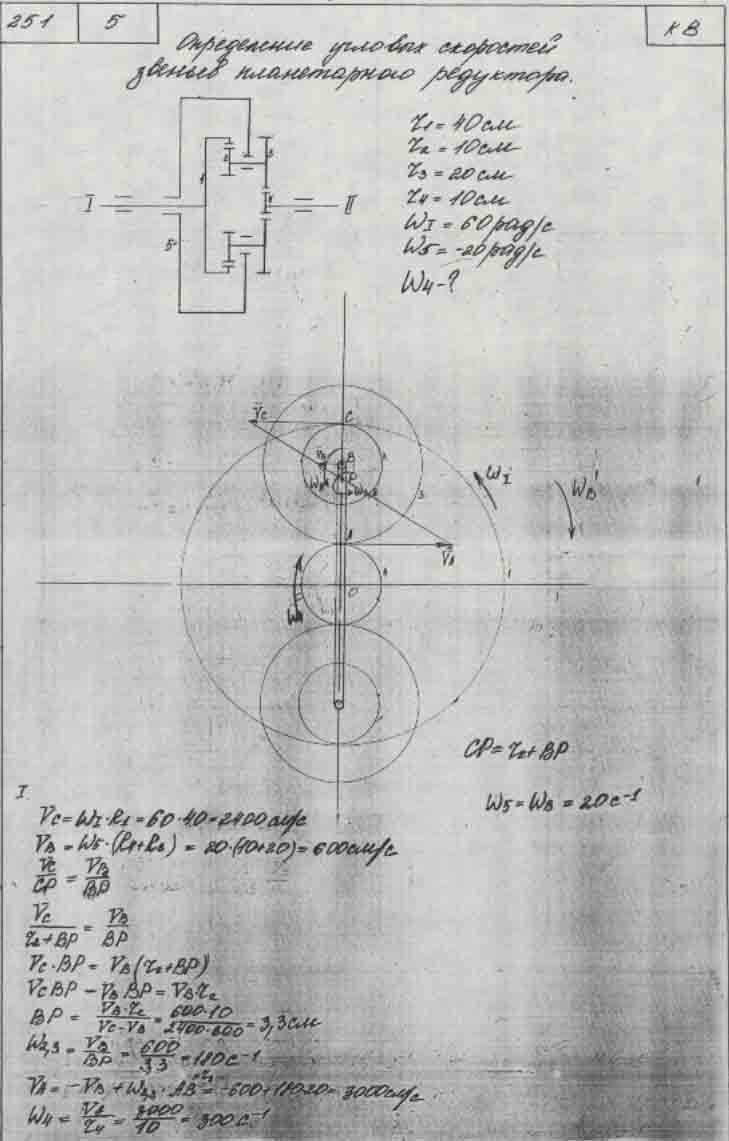 251
5
КВ
Определение угловых скоростей
звеньев планетарного редуктора.
r1 = 40 см
r2 = 10 см
r3 = 20 см
r4 = 10 см
WI = 60 рад/с
W5 = -20 рад/с
W4 - ?
I
II
1
2
3
4
5
VC
C
B
P
2
3
WI
WB
A
VA
O
4
1
W4
CP = r2 + BP
W5 = WB = 20 с⁻¹
I.
VC = WI · R1 = 60 · 40 = 2400 см/с
VB = W5 · (R4+R3) = 20·(10+20) = 600 см/с
VC/CP = VB/BP
VC/(r2+BP) = VB/BP
VC · BP = VB (r2+BP)
VC BP - VB BP = VB r2
BP = (VB · r2)/(VC - VB) = (600·10)/(2400-600) = 3,3 см
W2,3 = VB/BP = 600/3,3 = 180 с⁻¹
VA = -VB + W2,3 · AB = -600 + 180·20 = 3000 см/с
W4 = VA/r4 = 3000/10 = 300 с⁻¹